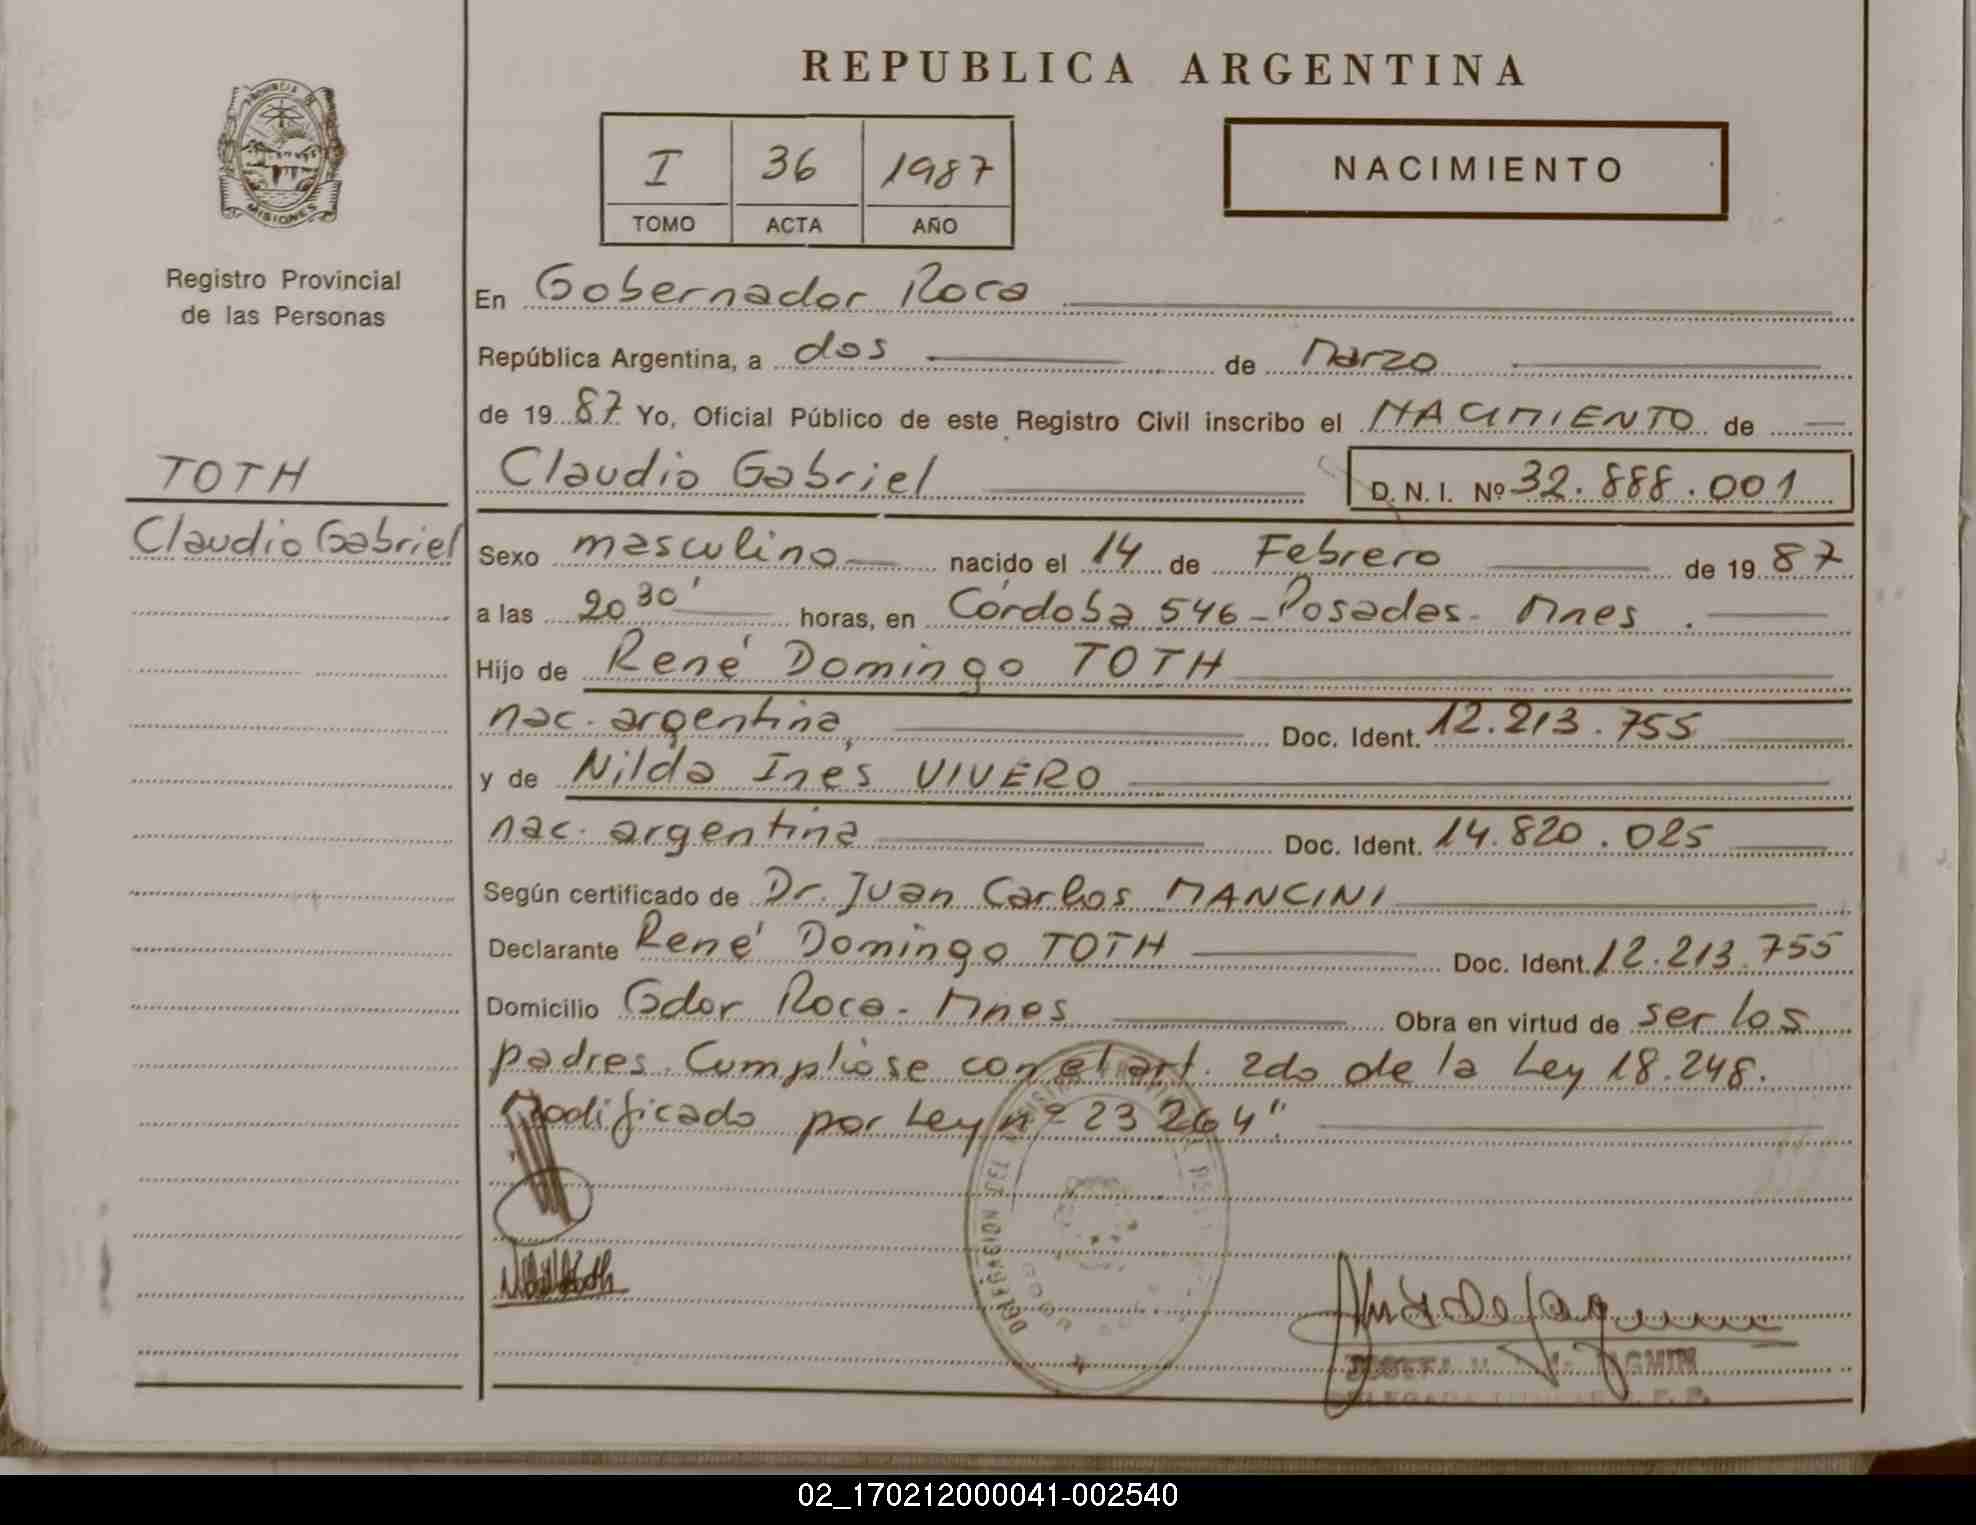 REPUBLICA ARGENTINA
PROVINCIA DE
MISIONES
I 36 1987
TOMO ACTA AÑO
NACIMIENTO
Registro Provincial
de las Personas
En Gobernador Roca
República Argentina, a dos de Marzo
de 1987 Yo, Oficial Público de este Registro Civil inscribo el NACIMIENTO de
TOTH
Claudio Gabriel D.N.I. Nº 32.888.001
Claudio Gabriel
Sexo masculino nacido el 14 de Febrero de 1987
a las 20 30' horas, en Córdoba 546-Posadas- Mnes.
Hijo de René Domingo TOTH
nac. argentina, Doc. Ident. 12.213.755
y de Nilda Ines VIVERO
nac. argentina Doc. Ident. 14.820.025
Según certificado de Dr. Juan Carlos MANCINI
Declarante René Domingo TOTH Doc. Ident. 12.213.755
Domicilio Gdor Roca- Mnes Obra en virtud de ser los
padres. Cumplióse con el art. 2do de la Ley 18.248.
Modificado por Ley nº 23264".
DELEGACION
02_170212000041-002540